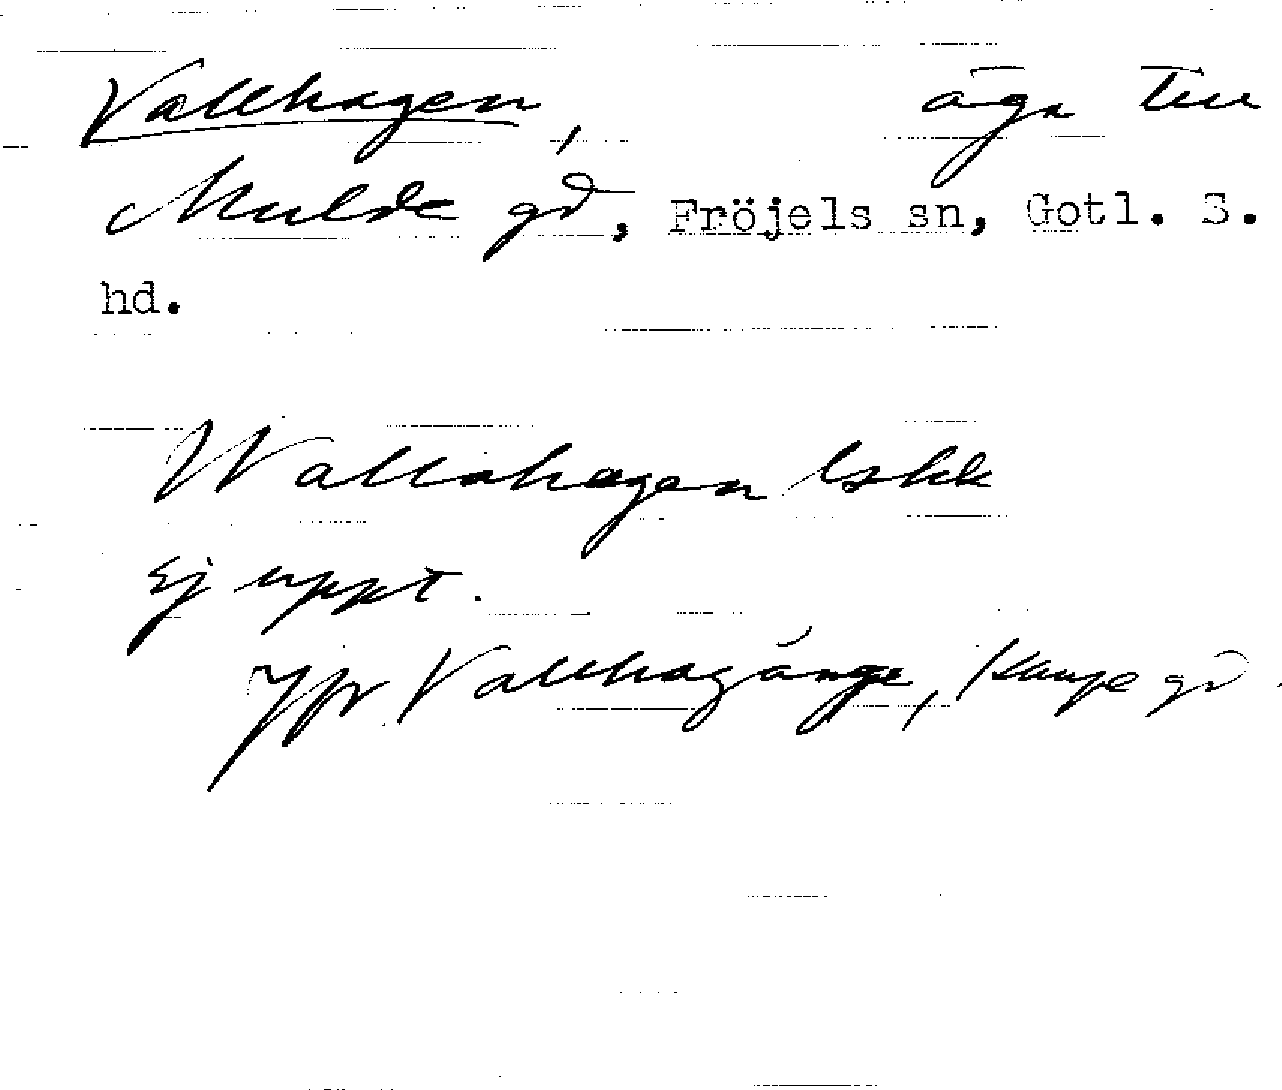 Vallhagen, äga till
Mulde gd, Fröjels sn, Gotl. S.
hd.
Wallahagen lskk
Ej uppt.
Jfr Vallhagänge, Kaupe gd.